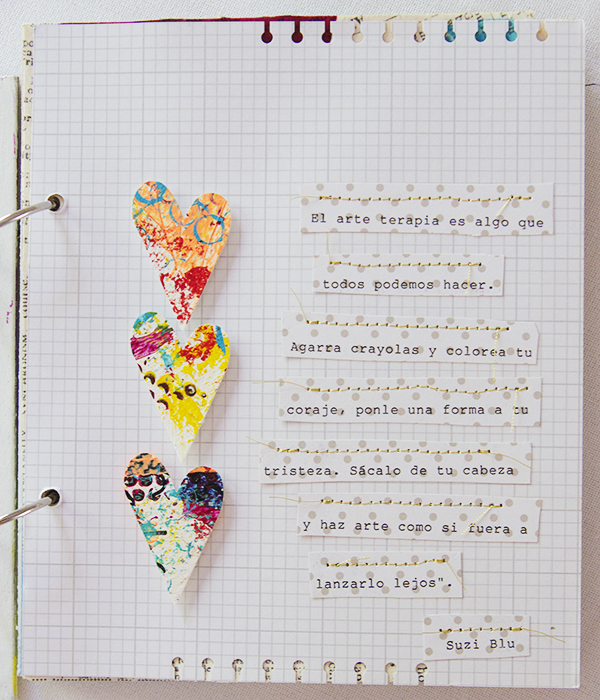 El arte terapia es algo que
todos podemos hacer.
Agarra crayolas y colorea tu
coraje, ponle una forma a tu
tristeza. Sácalo de tu cabeza
y haz arte como si fuera a
lanzarlo lejos".
Suzi Blu